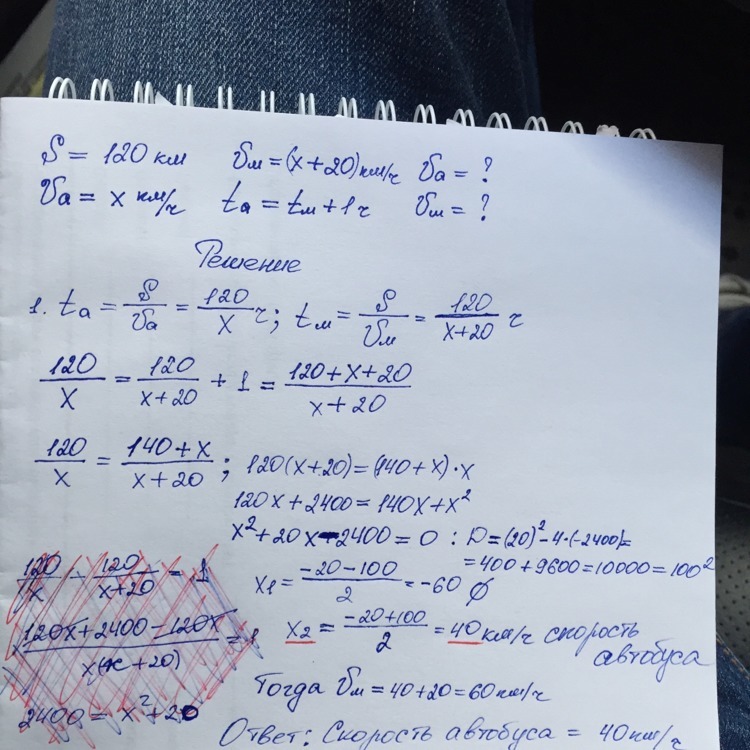 S = 120 км   υм = (x+20) км/ч   υа = ?
υа = x км/ч   tа = tм + 1 ч   υм = ?
Решение
1. tа = S/υа = 120/x ч; tм = S/υм = 120/(x+20) ч
120/x = 120/(x+20) + 1 = (120+x+20)/(x+20)
120/x = (140+x)/(x+20); 120(x+20) = (140+x)·x
120x + 2400 = 140x + x²
x² + 20x - 2400 = 0 : D = (20)² - 4·(-2400) =
= 400 + 9600 = 10000 = 100²
120/x - 120/(x+20) = 1
x1 = (-20-100)/2 = -60 ∅
(120x + 2400 - 120x)/(x(x+20)) = 1
x2 = (-20+100)/2 = 40 км/ч скорость
автобуса
2400 = x² + 20
Тогда υм = 40+20 = 60 км/ч
Ответ: Скорость автобуса = 40 км/ч